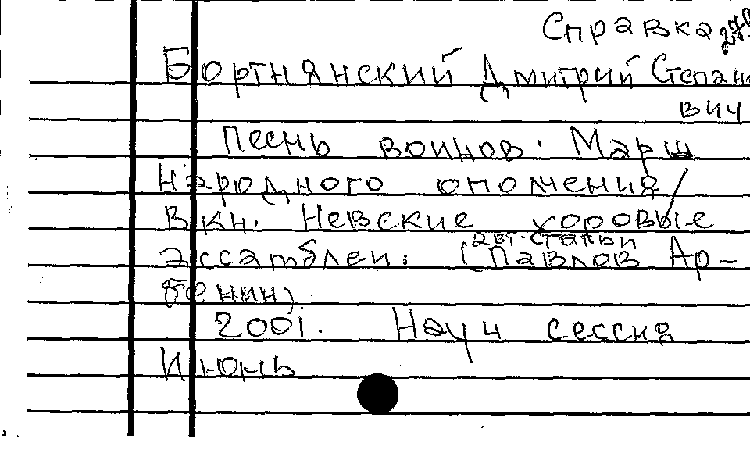 Справка
Бортнянский Дмитрий Степан
вич
Песнь воинов. Марш
народного ополчения/
В кн. Невские хоровые
ассамблеи. (Павлов Ар-
авт. статьи
сений)
2001. Науч сессия
Июнь